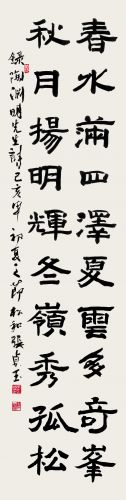 春水滿四澤夏雲多奇峯
秋月揚明輝冬嶺秀孤松
錄陶淵明先生詩己亥年初夏之節松和張貞玉